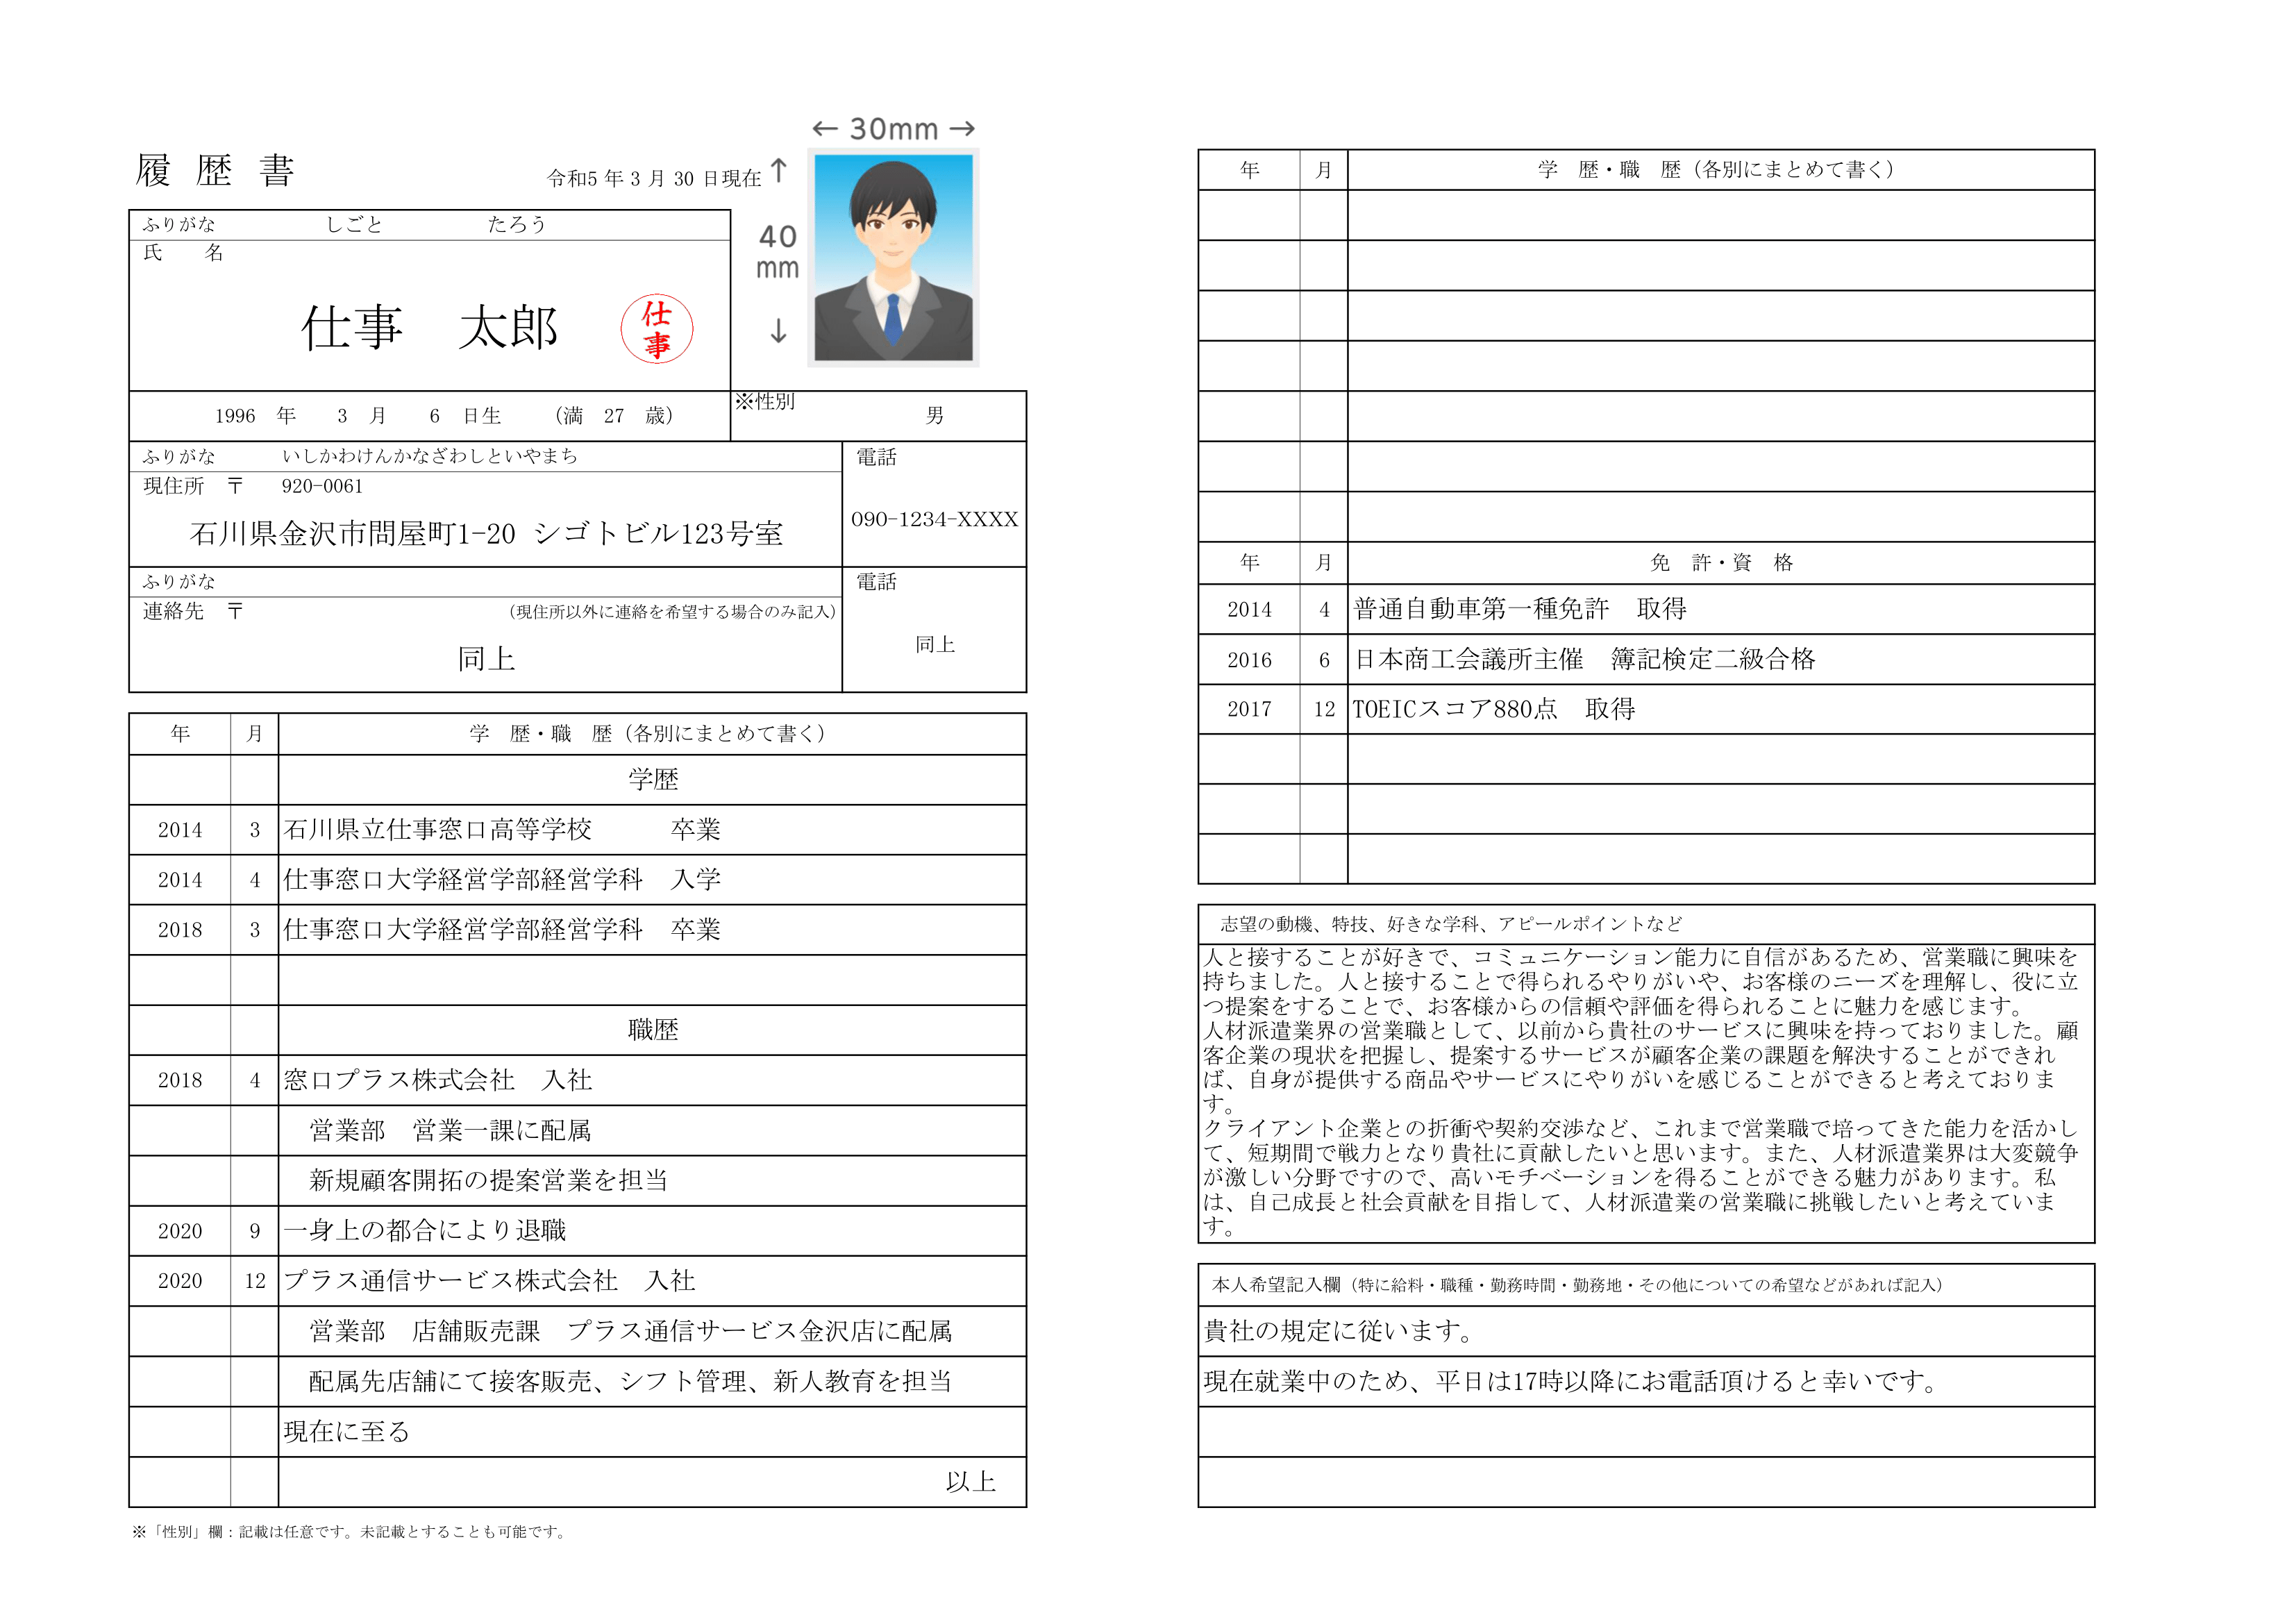 ← 30mm →
履 歴 書
令和5 年 3 月 30 日現在
↑
40
mm
↓
ふりがな しごと たろう
氏 名
仕事 太郎
仕事
1996 年 3 月 6 日生 (満 27 歳)
※性別 男
ふりがな いしかわけんかなざわしといやまち
電話
現住所 〒 920-0061
090-1234-XXXX
石川県金沢市問屋町1-20 シゴトビル123号室
ふりがな
電話
連絡先 〒 (現住所以外に連絡を希望する場合のみ記入)
同上
同上
年 月 学 歴・職 歴 (各別にまとめて書く)
学歴
2014 3 石川県立仕事窓口高等学校 卒業
2014 4 仕事窓口大学経営学部経営学科 入学
2018 3 仕事窓口大学経営学部経営学科 卒業
職歴
2018 4 窓口プラス株式会社 入社
営業部 営業一課に配属
新規顧客開拓の提案営業を担当
2020 9 一身上の都合により退職
2020 12 プラス通信サービス株式会社 入社
営業部 店舗販売課 プラス通信サービス金沢店に配属
配属先店舗にて接客販売、シフト管理、新人教育を担当
現在に至る
以上
※「性別」欄:記載は任意です。未記載とすることも可能です。
年 月 学 歴・職 歴 (各別にまとめて書く)
年 月 免 許・資 格
2014 4 普通自動車第一種免許 取得
2016 6 日本商工会議所主催 簿記検定二級合格
2017 12 TOEICスコア880点 取得
志望の動機、特技、好きな学科、アピールポイントなど
人と接することが好きで、コミュニケーション能力に自信があるため、営業職に興味を
持ちました。人と接することで得られるやりがいや、お客様のニーズを理解し、役に立
つ提案をすることで、お客様からの信頼や評価を得られることに魅力を感じます。
人材派遣業界の営業職として、以前から貴社のサービスに興味を持っておりました。顧
客企業の現状を把握し、提案するサービスが顧客企業の課題を解決することができれ
ば、自身が提供する商品やサービスにやりがいを感じることができると考えておりま
す。
クライアント企業との折衝や契約交渉など、これまで営業職で培ってきた能力を活かし
て、短期間で戦力となり貴社に貢献したいと思います。また、人材派遣業界は大変競争
が激しい分野ですので、高いモチベーションを得ることができる魅力があります。私
は、自己成長と社会貢献を目指して、人材派遣業の営業職に挑戦したいと考えていま
す。
本人希望記入欄 (特に給料・職種・勤務時間・勤務地・その他についての希望などがあれば記入)
貴社の規定に従います。
現在就業中のため、平日は17時以降にお電話頂けると幸いです。